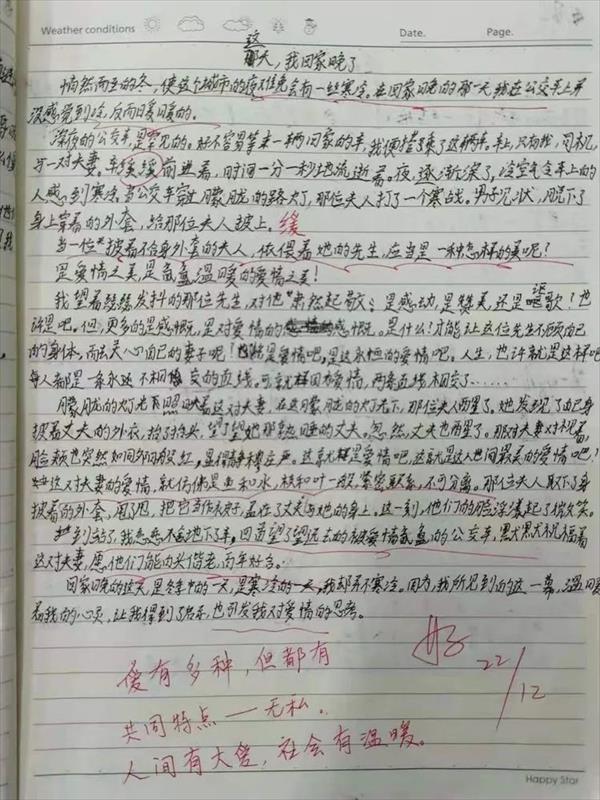 Weather conditions Date. Page.
这
那天，我回家晚了
悄然而至的冬，使这个城市的夜难免会有一丝寒冷。在回家晚的那一天我在公交车上并
没感觉到冷，反而暖暖的。
深夜的公交车是罕见的。好不容易等来一辆回家的车，我便搭乘了这辆车。车上，只有我，司机，
另一对夫妻。车缓缓前进着，时间一分一秒地流逝着。夜，逐渐深了，冷空气令车上的
人感到寒冷。当公交车穿过朦胧的路灯，那位夫人打了一个寒战。男子见状，脱下了
身上穿着的外套，给那位夫人披上。缓
当一位披着不合身外套的夫人，依偎着她的先生，应当是一种怎样的美呢？
是爱情之美，是氤氲温暖的爱情之美！
我望着瑟瑟发抖的那位先生，对他肃然起敬；是感动，是赞美，还是讴歌！也
许是吧。但，更多的是感慨，是对爱情的感慨。是什么！才能让这位先生不顾自己
的身体，而去关心自己的妻子呢！也许是爱情吧，是这永恒的爱情吧。人生，也许就是这样吧
每人都是一条永远不相交的直线。可就样因为爱情，两条直线相交了……
朦胧的灯光下照映着这对夫妻，在这朦胧的灯光下，那位夫人酒醒了。她发现了自己身
披着丈夫的外衣，抬了抬头，望了望她那熟睡的丈夫。忽然，丈夫也酒醒了。那对夫妻对视着，
脸颊也突然如同外般红，显得静穆庄严。这就样是爱情吧，这就是这人世间最美的爱情吧！
这对夫妻的爱情，就仿佛是鱼和水，枝和叶一般，紧密联系，不可分离。那位夫人取下了身
披着的外套，甩了甩，把它当作被子，盖在了丈夫与她的身上。这一刻，他们的脸浮漾起了微笑。
到站了，我恋恋不舍地下了车。回首望了望远去的被爱情氤氲的公交车，默默祝福着
这对夫妻，愿他们能白头偕老，百年好合。
回家晚的这天，是冬季中的一天，是寒冷的一天，我却若不寒冷。因为，我所见到的这一幕，温暖
着我的心灵，让我得到了启示，也引发我对爱情的思考。
好
22/12
爱有多种，但都有
共同特点——无私。
人间有大爱，社会有温暖。
Happy Star